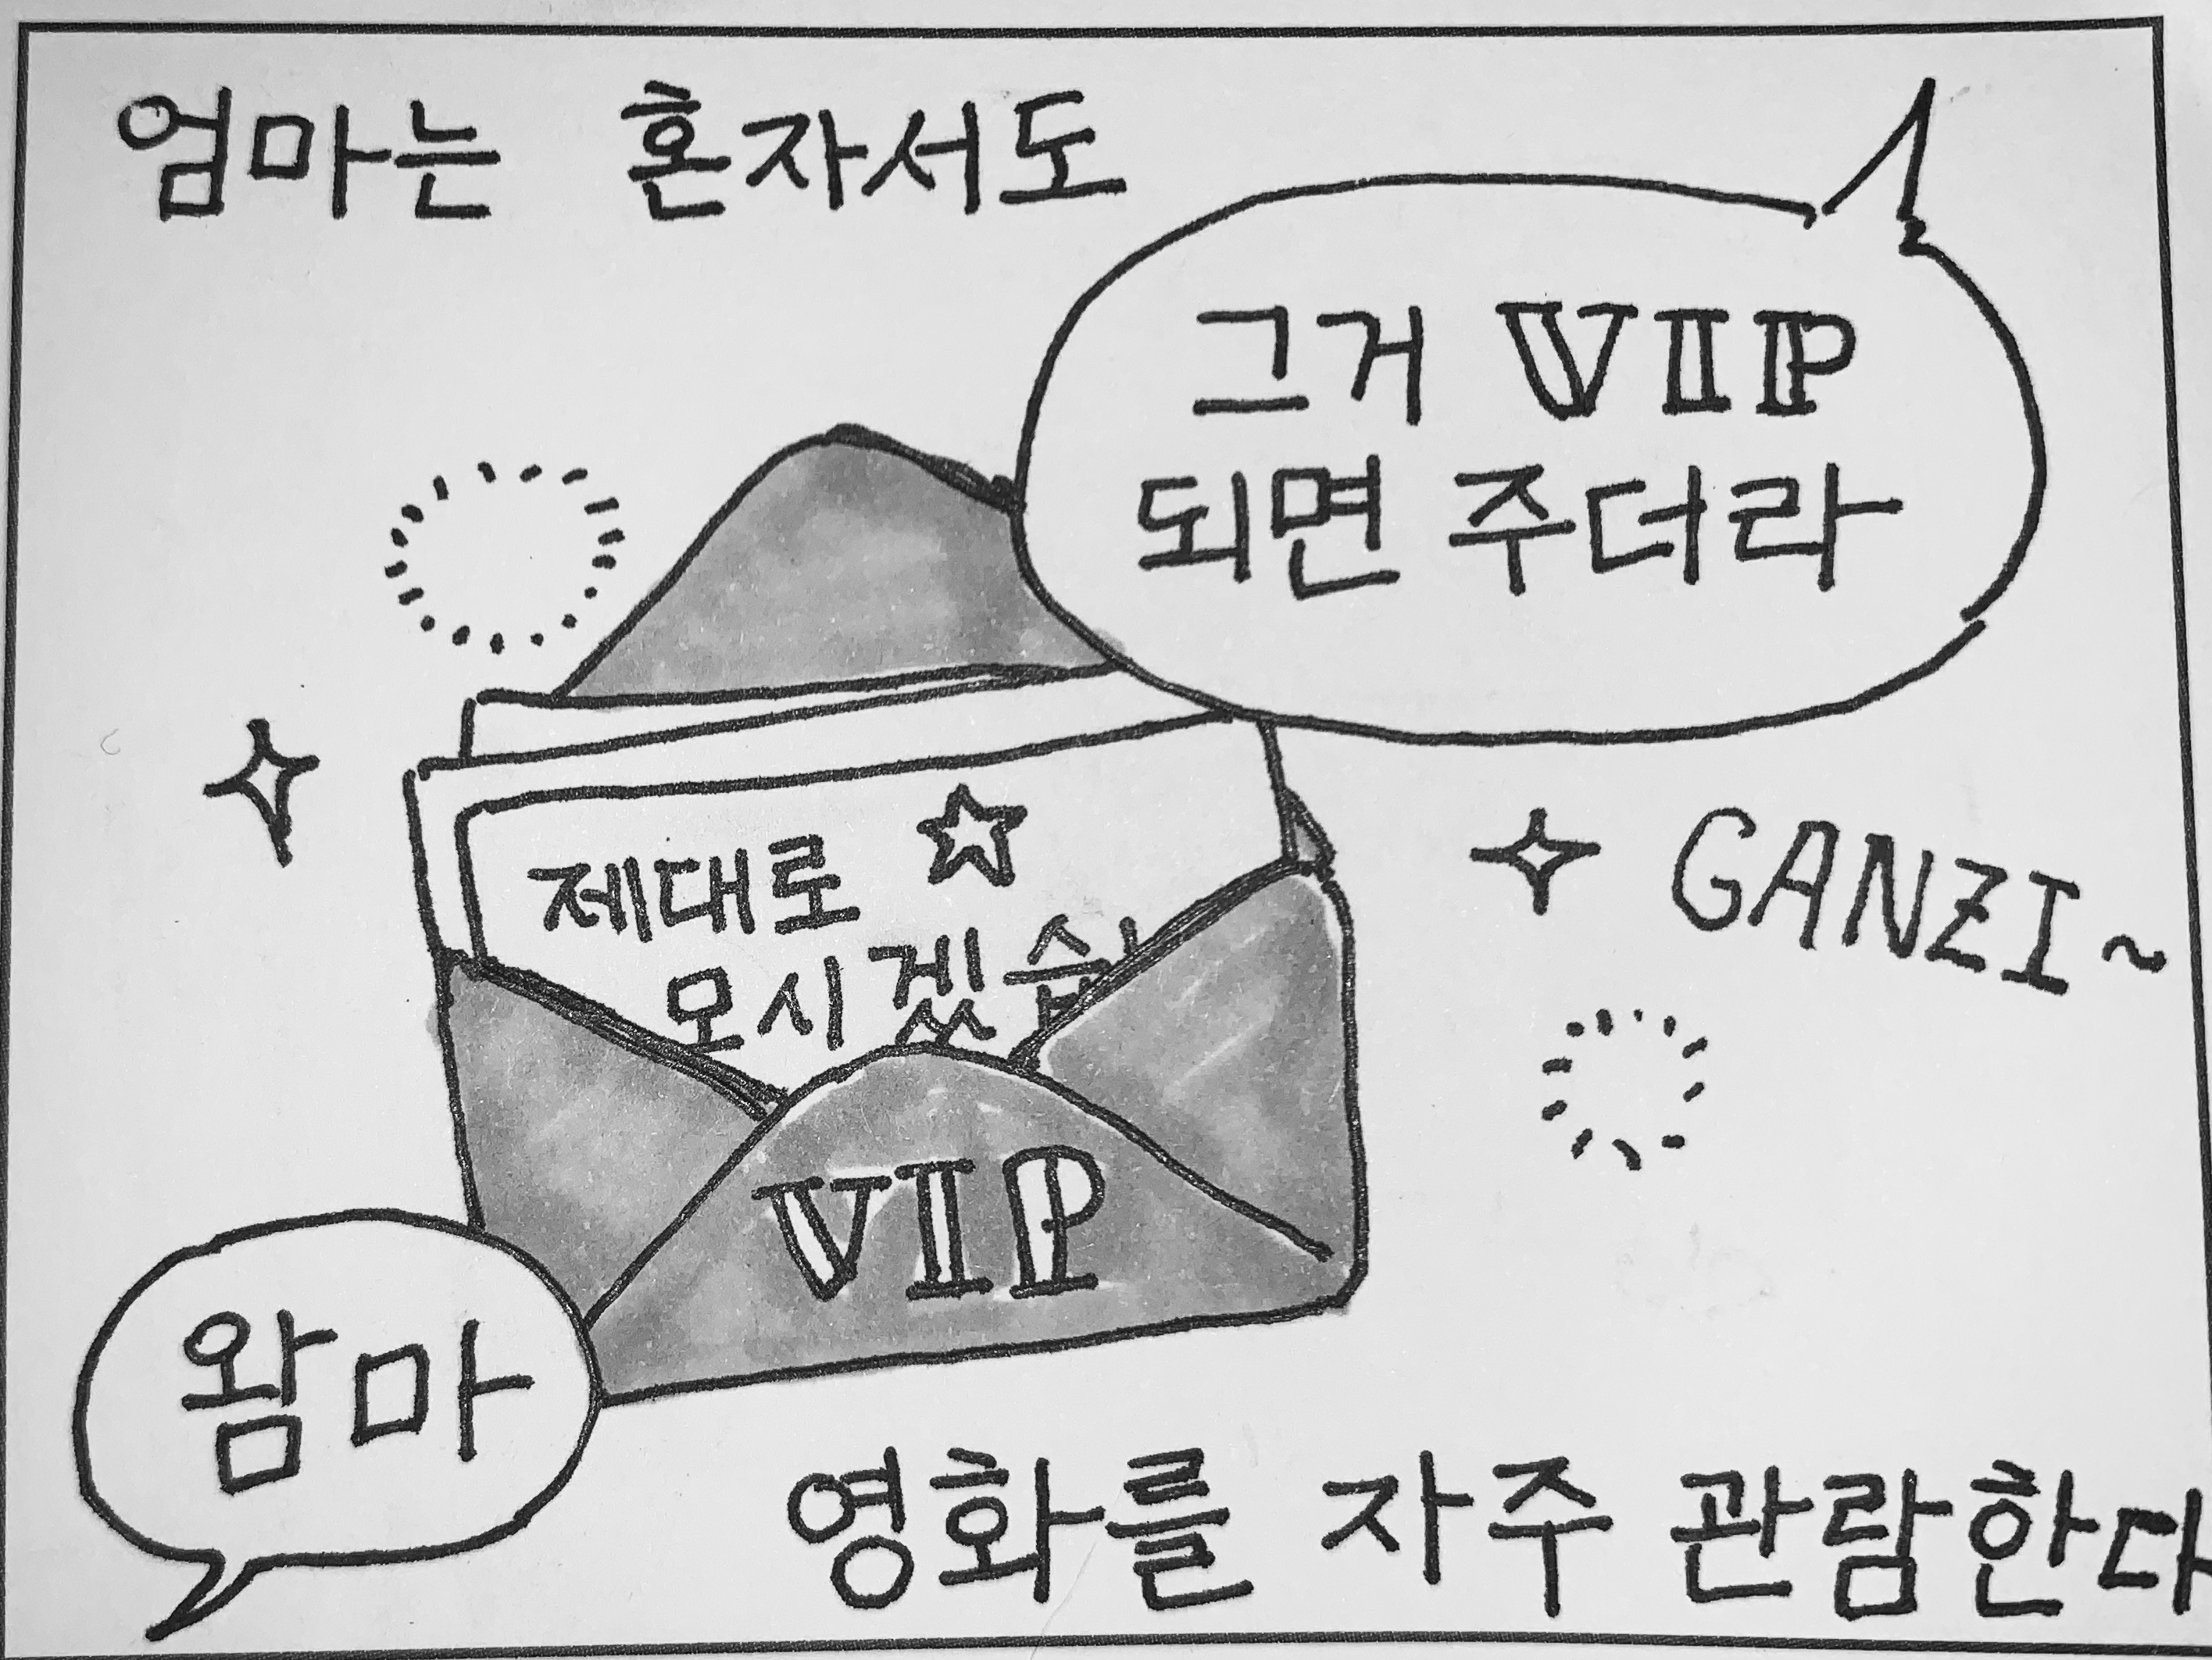 엄마는 혼자서도
그거 VIP
되면 주더라
제대로 ☆
모시겠습
GANZI~
VIP
왐마
영화를 자주 관람한다